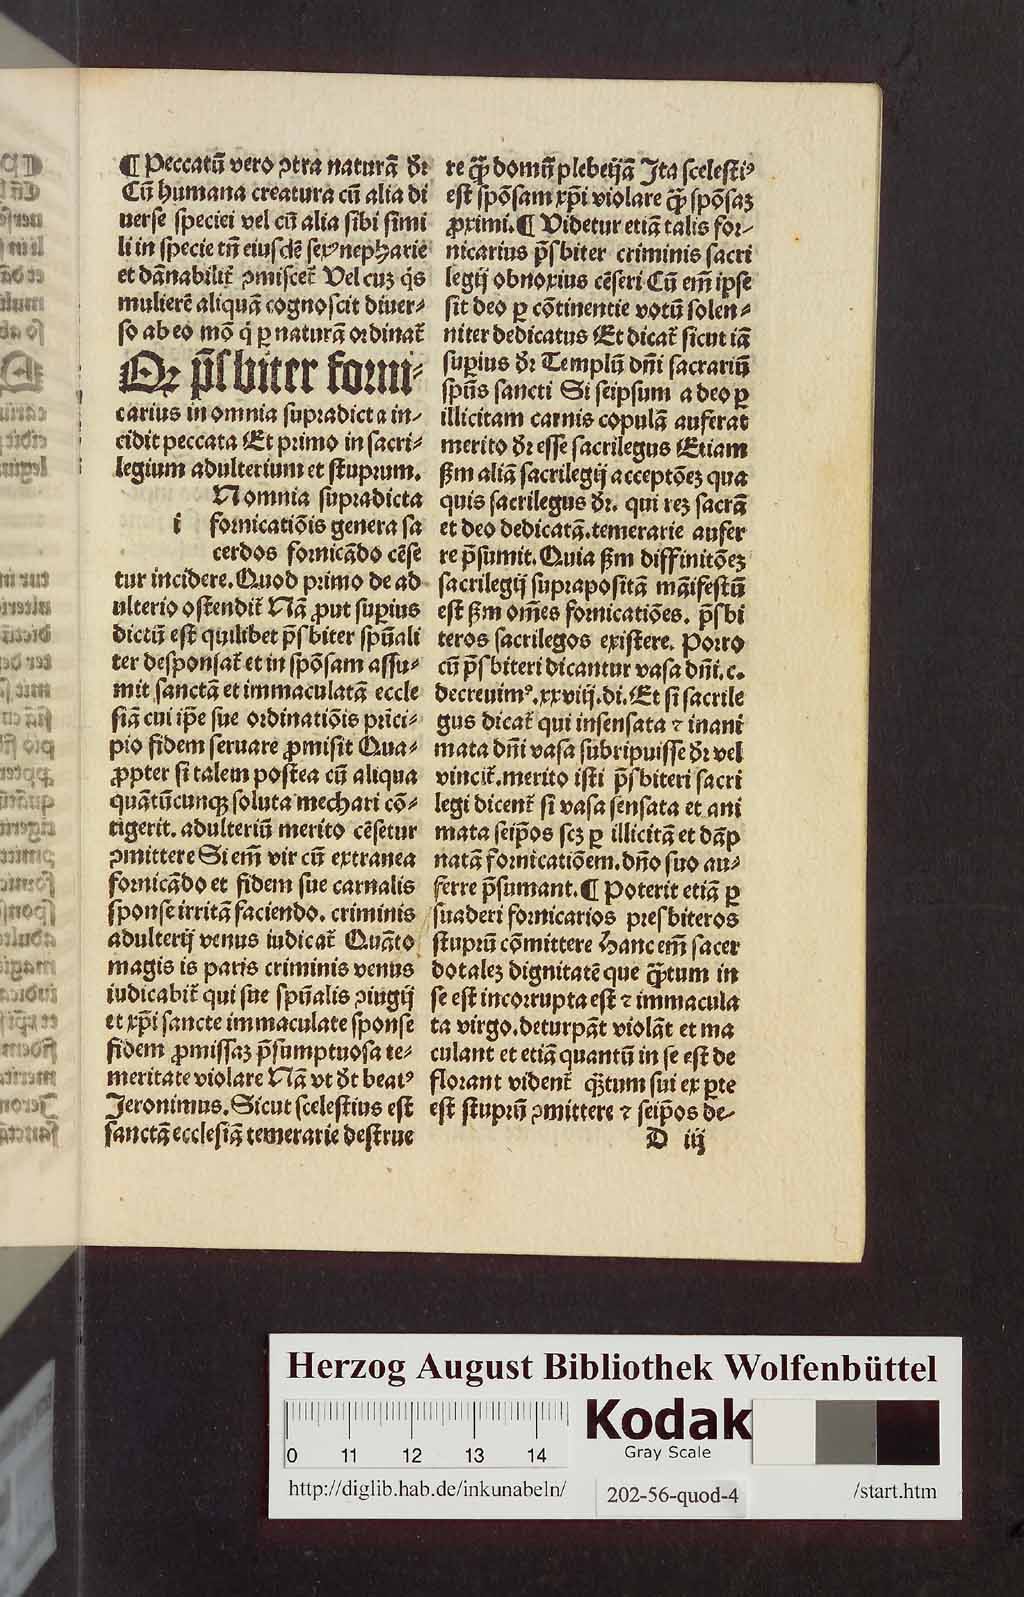 ¶ Peccatū vero ꝯtra naturā dꝛ
Cū humana creatura cū alia di
uerse speciei vel cū alia sibi simi
li in specie tn̄ eiusdē sexꝰ nepharie
et dānabilit̄ ꝯmiscet̄ Vel cuz q̇s
mulierē aliquā cognoscit diuer⸗
so ab eo mō q̇ ꝑ naturā ordinat̄
Qꝛ p̄sbiter forni⸗
carius in omnia supradicta in⸗
cidit peccata Et primo in sacri⸗
legium adulterium et stuprum.
N omnia supradicta
i fornicatiōis genera sa
cerdos fornicādo cēse
tur incidere. Quod primo de ad
ulterio ostendit̄ Nā ꝓut suꝑius
dictū est quilibet p̄sbiter spūali
ter desponsat̄ et in spōsam assu⸗
mit sanctā et immaculatā eccle
siā cui ip̄e sue ordinatiōis prīci⸗
pio fidem seruare ꝓmisit Qua⸗
ꝓpter si talem postea cū aliqua
quātūcunqꝫ soluta mechari cō⸗
tigerit. adulteriū merito cēsetur
ꝯmittere Si em̄ vir cū extranea
fornicādo et fidem sue carnalis
sponse irritā faciendo. criminis
adulterij venus iudicat̄ Quāto
magis is paris criminis venus
iudicabit̄ qui sue spūalis ꝯiugij
et xp̄i sancte immaculate sponse
fidem ꝓmissaꝫ p̄sumptuosa te⸗
meritate violare Nā vt dt̄ beatꝰ
Jeronimus. Sicut scelestius est
sanctā ecclesiā temerarie destrue
re qꝫ̄ domū plebeijā Ita scelestiꝰ
est spōsam xp̄i violare qꝫ̄ spōsaꝫ
ꝓximi. ¶ Videtur etiā talis for⸗
nicarius p̄sbiter criminis sacri
legij obnoxius cēseri Cū em̄ ipse
sit deo ꝑ cōtinentie votū solen⸗
niter dedicatus Et dicat̄ sicut iā
suꝑius dꝛ Templū dn̄i sacrariū
spūs sancti Si seipsum a deo ꝑ
illicitam carnis copulā auferat
merito dꝛ esse sacrilegus Etiam
ẜm aliā sacrilegij acceptōeꝫ qua
quis sacrilegus dꝛ. qui reꝫ sacrā
et deo dedicatā. temerarie aufer
re p̄sumit. Quia ẜm diffinitōeꝫ
sacrilegij suprapositā māifestū
est ẜm om̄es fornicatiōes. p̄sbi
teros sacrilegos existere. Porro
cū p̄sbiteri dicantur vasa dn̄i. c.
decreuimꝰ. xxviij. di. Et si sacrile
gus dicat̄ qui insensata ⁊ inani
mata dn̄i vasa subripuisse dꝛ vel
vincit̄. merito isti p̄sbiteri sacri
legi dicent̄ si vasa sensata et ani
mata seip̄os scꝫ ꝑ illicitā et dāp
natā fornicatiōem. dn̄o suo au⸗
ferre p̄sumant. ¶ Poterit etiā ꝑ
suaderi fornicarios presbiteros
stuprū cōmittere Hanc em̄ sacer
dotaleꝫ dignitatē que qꝫ̄tum in
se est incorrupta est ⁊ immacula
ta virgo. deturpāt violāt et ma
culant et etiā quantū in se est de
florant vident̄ qꝫ̄tum sui ex ꝑte
est stuprū ꝯmittere ⁊ seip̄os de⸗
D iij
Herzog August Bibliothek Wolfenbüttel
0 11 12 13 14
Kodak
Gray Scale
http://diglib.hab.de/inkunabeln/
202-56-quod-4
/start.htm